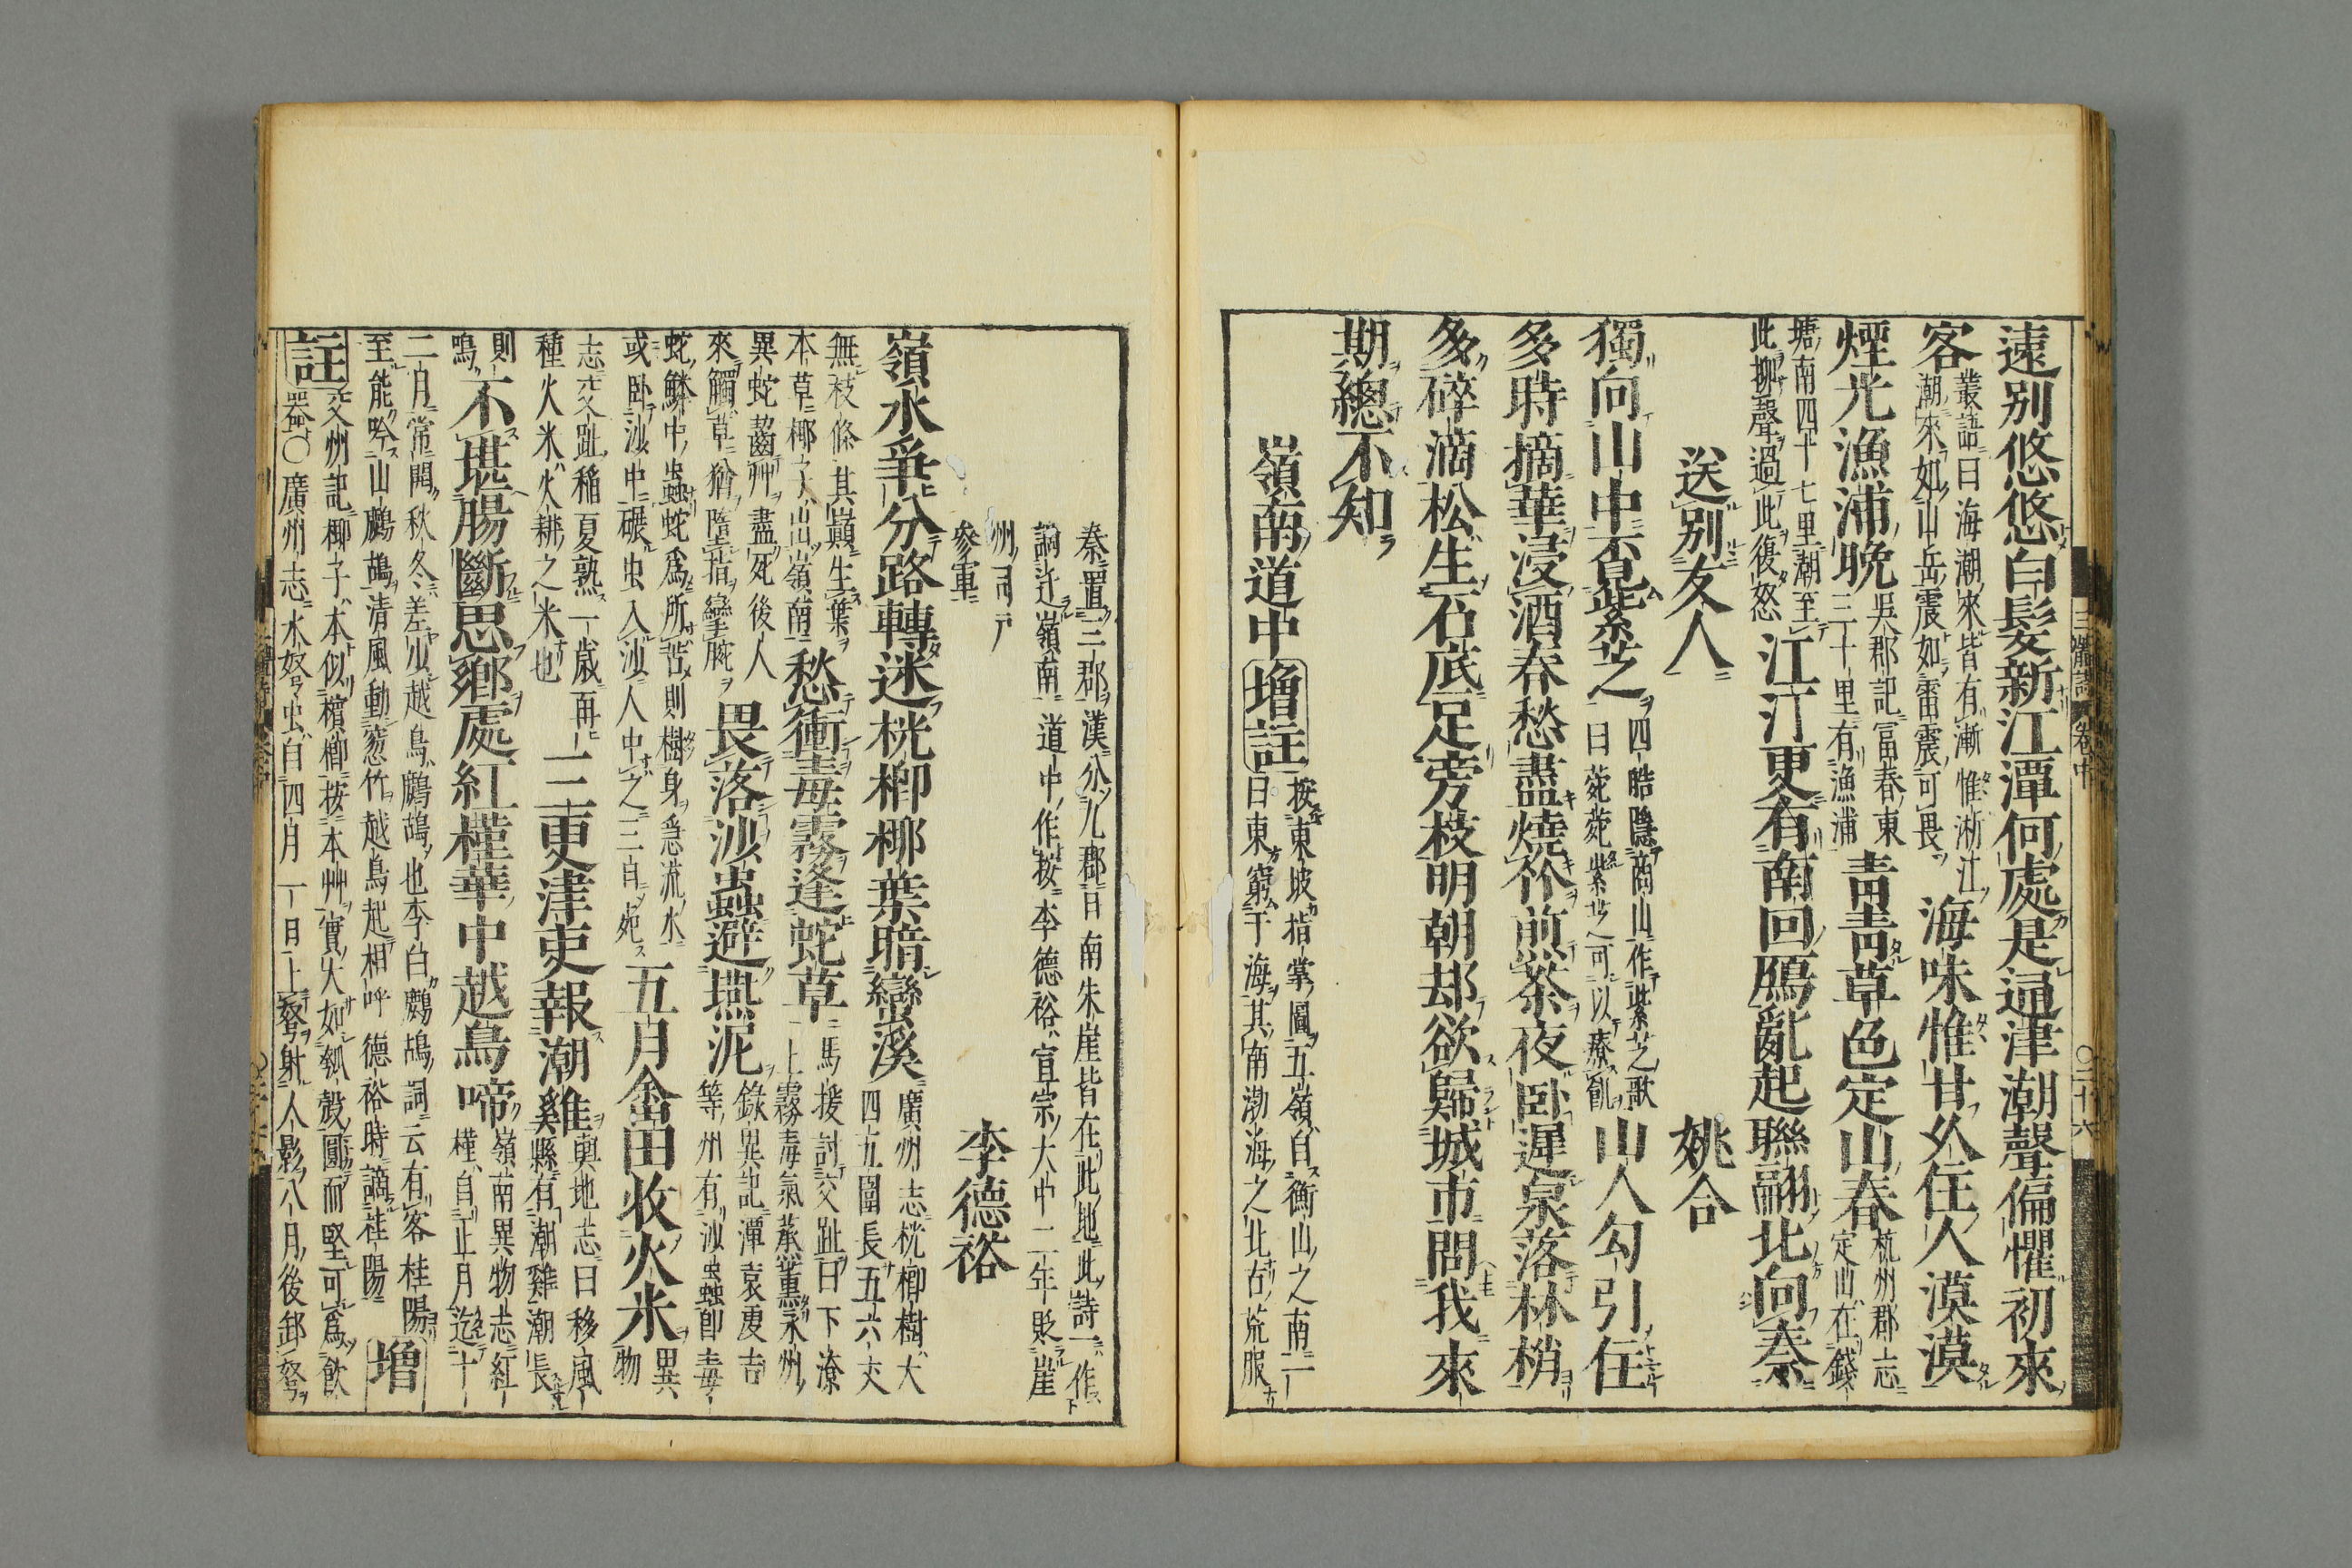 遠別悠悠白髮新江潭何處是通津潮聲偏懼初來
客
叢語曰海潮來皆有漸惟淅江
潮來如山岳震如雷震可畏
海味惟甘久住人漠漠
煙光漁浦晩
吳郡記冨春東
三十里有漁浦
青青草色定山春
杭州郡志
定山在錢
塘南四十七里潮至
此抑聲過此復怒
江汀更有南回鴈亂起聯翩北向秦
送別友人
姚合
獨向山中覓紫芝
四皓隱商山作紫芝歌
曰菀菀紫芝可以療飢
山人勾引住
多時摘華浸酒春愁盡燒竹煎茶夜臥遲泉落林梢
多碎滴松生石底足旁枝明朝却欲歸城市問我來
期總不知
嶺南道中
增註
按東坡指掌圖五嶺自衡山之南一
曰東窮于海其南渤海之北古荒服
秦置三郡漢分九郡日南朱崖皆在此地此詩一作
謫迁嶺南道中作按李德裕宣宗大中二年貶崖
州司
參軍
李德裕
嶺水爭分路轉迷桄榔椰葉暗蠻溪
廣州志桄榔樹大
四五圍長五六丈
無枝條其巔生葉
本草椰子出嶺南
愁衝毒霧逢蛇草
馬援討交趾曰下潦
上霧毒氣蒸薰永州
異蛇齧艸盡死後人
來觸草猶墮指攣腕
畏落沙蟲避燕泥
錄異記潭袁虔吉
等州有沙蟲卽毒
蛇鱗中蟲蛇爲所苦則樹身急流水
或臥沙中碾虫入沙人中之三自死
五月畬田收火米
異物
志交趾稲夏熟一歲再
種火米火耕之米也
三更津吏報潮雞
輿地志曰移風
縣有潮雞潮長
則
鳴
不堪腸斷思鄕處紅槿華中越鳥啼
嶺南異物志紅
槿自正月迄十
二月常開秋冬差少越鳥鷓鴣也李白鷓鴣詞云有客桂陽
至能吟山鷓鴣清風動窓竹越鳥起相呼德裕時謫桂陽
增
註
交州記椰子本似檳榔按本艸實大如瓠殼圓而堅可爲飲
器○廣州志水弩虫自四月一日上弩射人影八月後卸弩
三體詩
卷中
○二十六